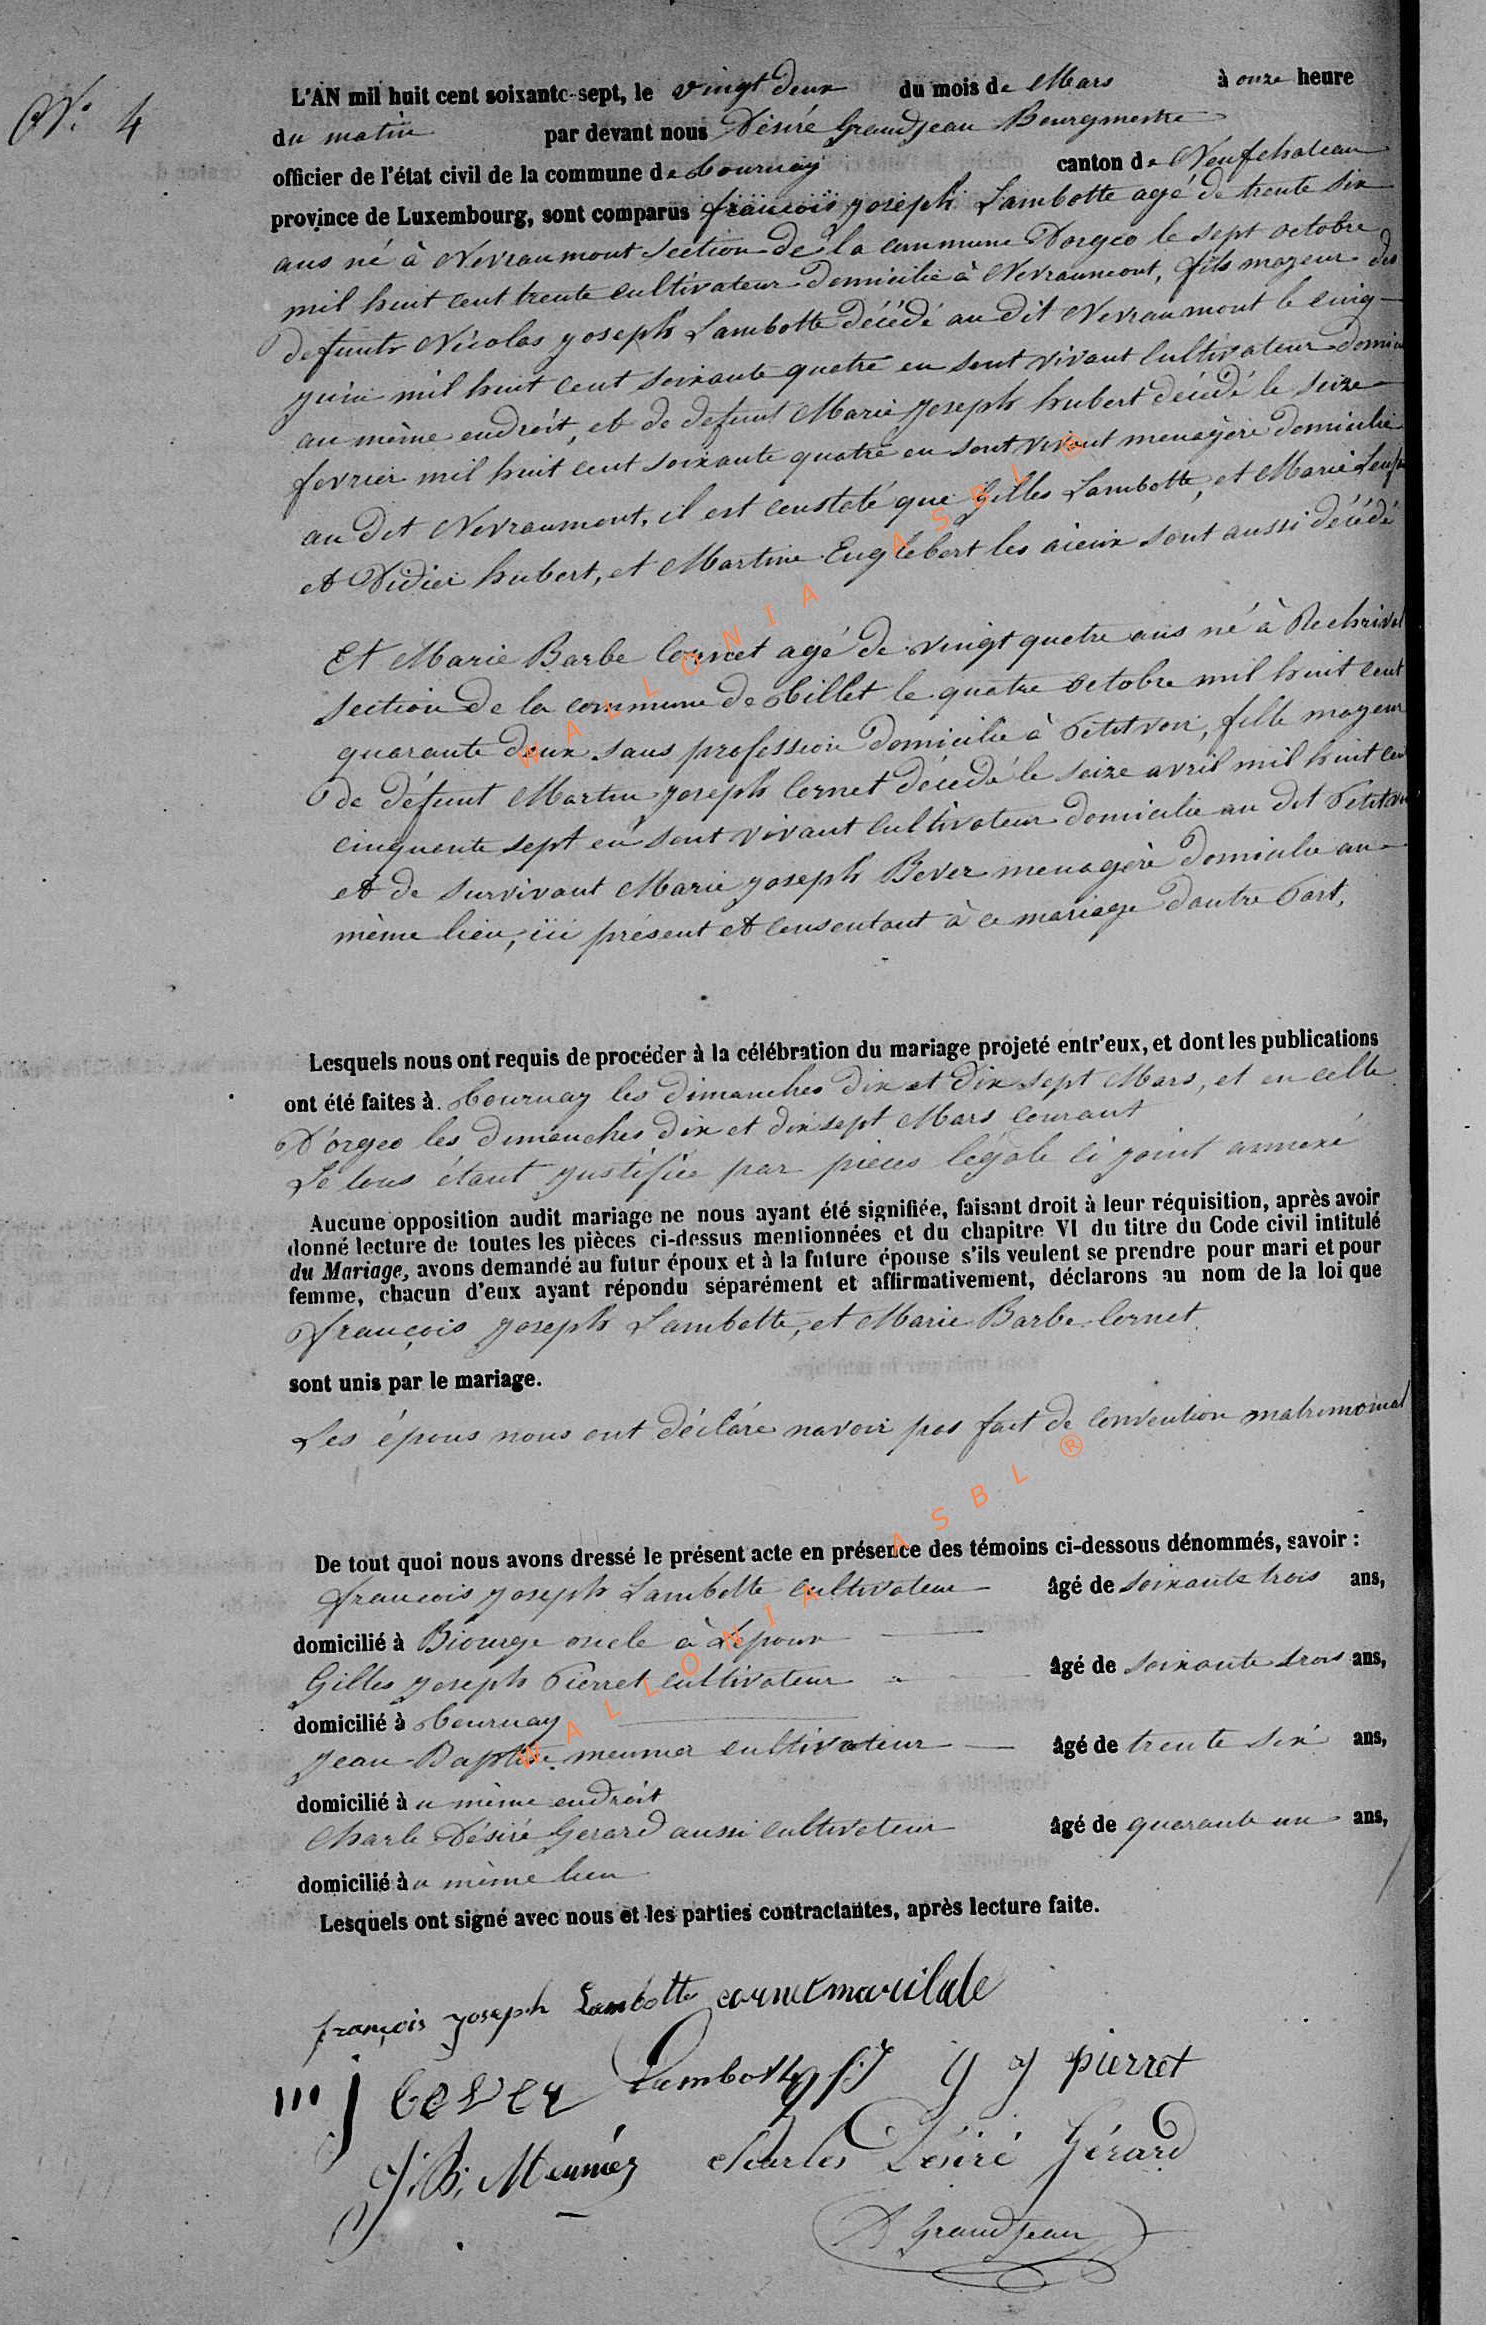 N° 4
L'AN mil huit cent soixante-sept, le vingt deux du mois de Mars à onze heure
du matin par devant nous Désiré Grandjean Bourgmestre
officier de l'état civil de la commune de Tournay canton de Neufchateau
province de Luxembourg, sont comparus françois joseph Lambotte agé de trente six
ans né à Nevraumont section de la commune Dorgeo le sept octobre
mil huit cent trente cultivateur domicilié à Nevraumont, fils mageur des
defunts Nicolas joseph Lambotte décédé au dit Nevraumont le cinq
juin mil huit cent soixante quatre en sont vivant cultivateur domici
au mème endroit, et de defunt Marie joseph hubert décédé le seize
fevrier mil huit cent soixante quatre en sont vivant menagère domicilié
au dit Nevraumont, il est constaté que Gilles Lambotte, et Marie
et Didier hubert, et Martine Englebert les aieux sont aussi décédé
Et Marie Barbe Cornet agé de vingt quatre ans né à Rechrival
section de la commune de Tillet le quatre octobre mil huit cent
quarante deux sans profession domicilié à Petitvoir, fille mageur
de défunt Martin joseph Cornet décédé le seize avril mil huit cen
cinquante sept en sont vivant cultivateur domicilié au dit Petitvoi
et de survivant Marie joseph Bever menagère domicilié au
mème lieu, ici présent et consentant à ce mariage dautre Part,
Lesquels nous ont requis de procéder à la célébration du mariage projeté entr'eux, et dont les publications
ont été faites à Tournay les dimanches dix et dix sept Mars, et en celle
D'orgeo les dimanches dix et dix sept Mars courant
Le tous étant justifiée par pieces légale ci joint annexé
Aucune opposition audit mariage ne nous ayant été signifiée, faisant droit à leur réquisition, après avoir
donné lecture de toutes les pièces ci-dessus mentionnées et du chapitre VI du titre du Code civil intitulé
du Mariage, avons demandé au futur époux et à la future épouse s'ils veulent se prendre pour mari et pour
femme, chacun d'eux ayant répondu séparément et affirmativement, déclarons au nom de la loi que
françois joseph Lambotte, et Marie Barbe Cornet
sont unis par le mariage.
Les épous nous ont déclaré navoir pas fait de Convention matrimonial
De tout quoi nous avons dressé le présent acte en présence des témoins ci-dessous dénommés, savoir :
francois joseph Lambotte cultivateur âgé de soixante trois ans,
domicilié à Biourge oncle à Lépoux
Gilles joseph Pierret cultivateur âgé de soixante trois ans,
domicilié à Tournay
jean Baptiste meunier cultivateur âgé de trente six ans,
domicilié à u mème endroit
Charle Désiré Gerard aussi cultivateur âgé de quarante un ans,
domicilié à u mème lieu
Lesquels ont signé avec nous et les parties contractantes, après lecture faite.
françois joseph Lambotte cornet
m j bever Lambotte f j g j pierret
J. B. Meunier charles Désiré Gérard
D Grandjean
WALLONIA ASBL ®
WALLONIA ASBL ®